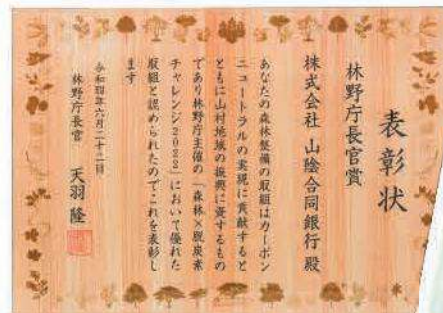 表彰状
林野庁長官賞
株式会社 山陰合同銀行 殿
あなたの森林整備の取組はカーボン
ニュートラルの実現に貢献すると
ともに山村地域の振興に資するもの
であり林野庁主催の「森林×脱炭素
チャレンジ2022」において優れた
取組と認められたのでこれを表彰し
ます
令和四年六月二十二日
林野庁長官 天羽 隆